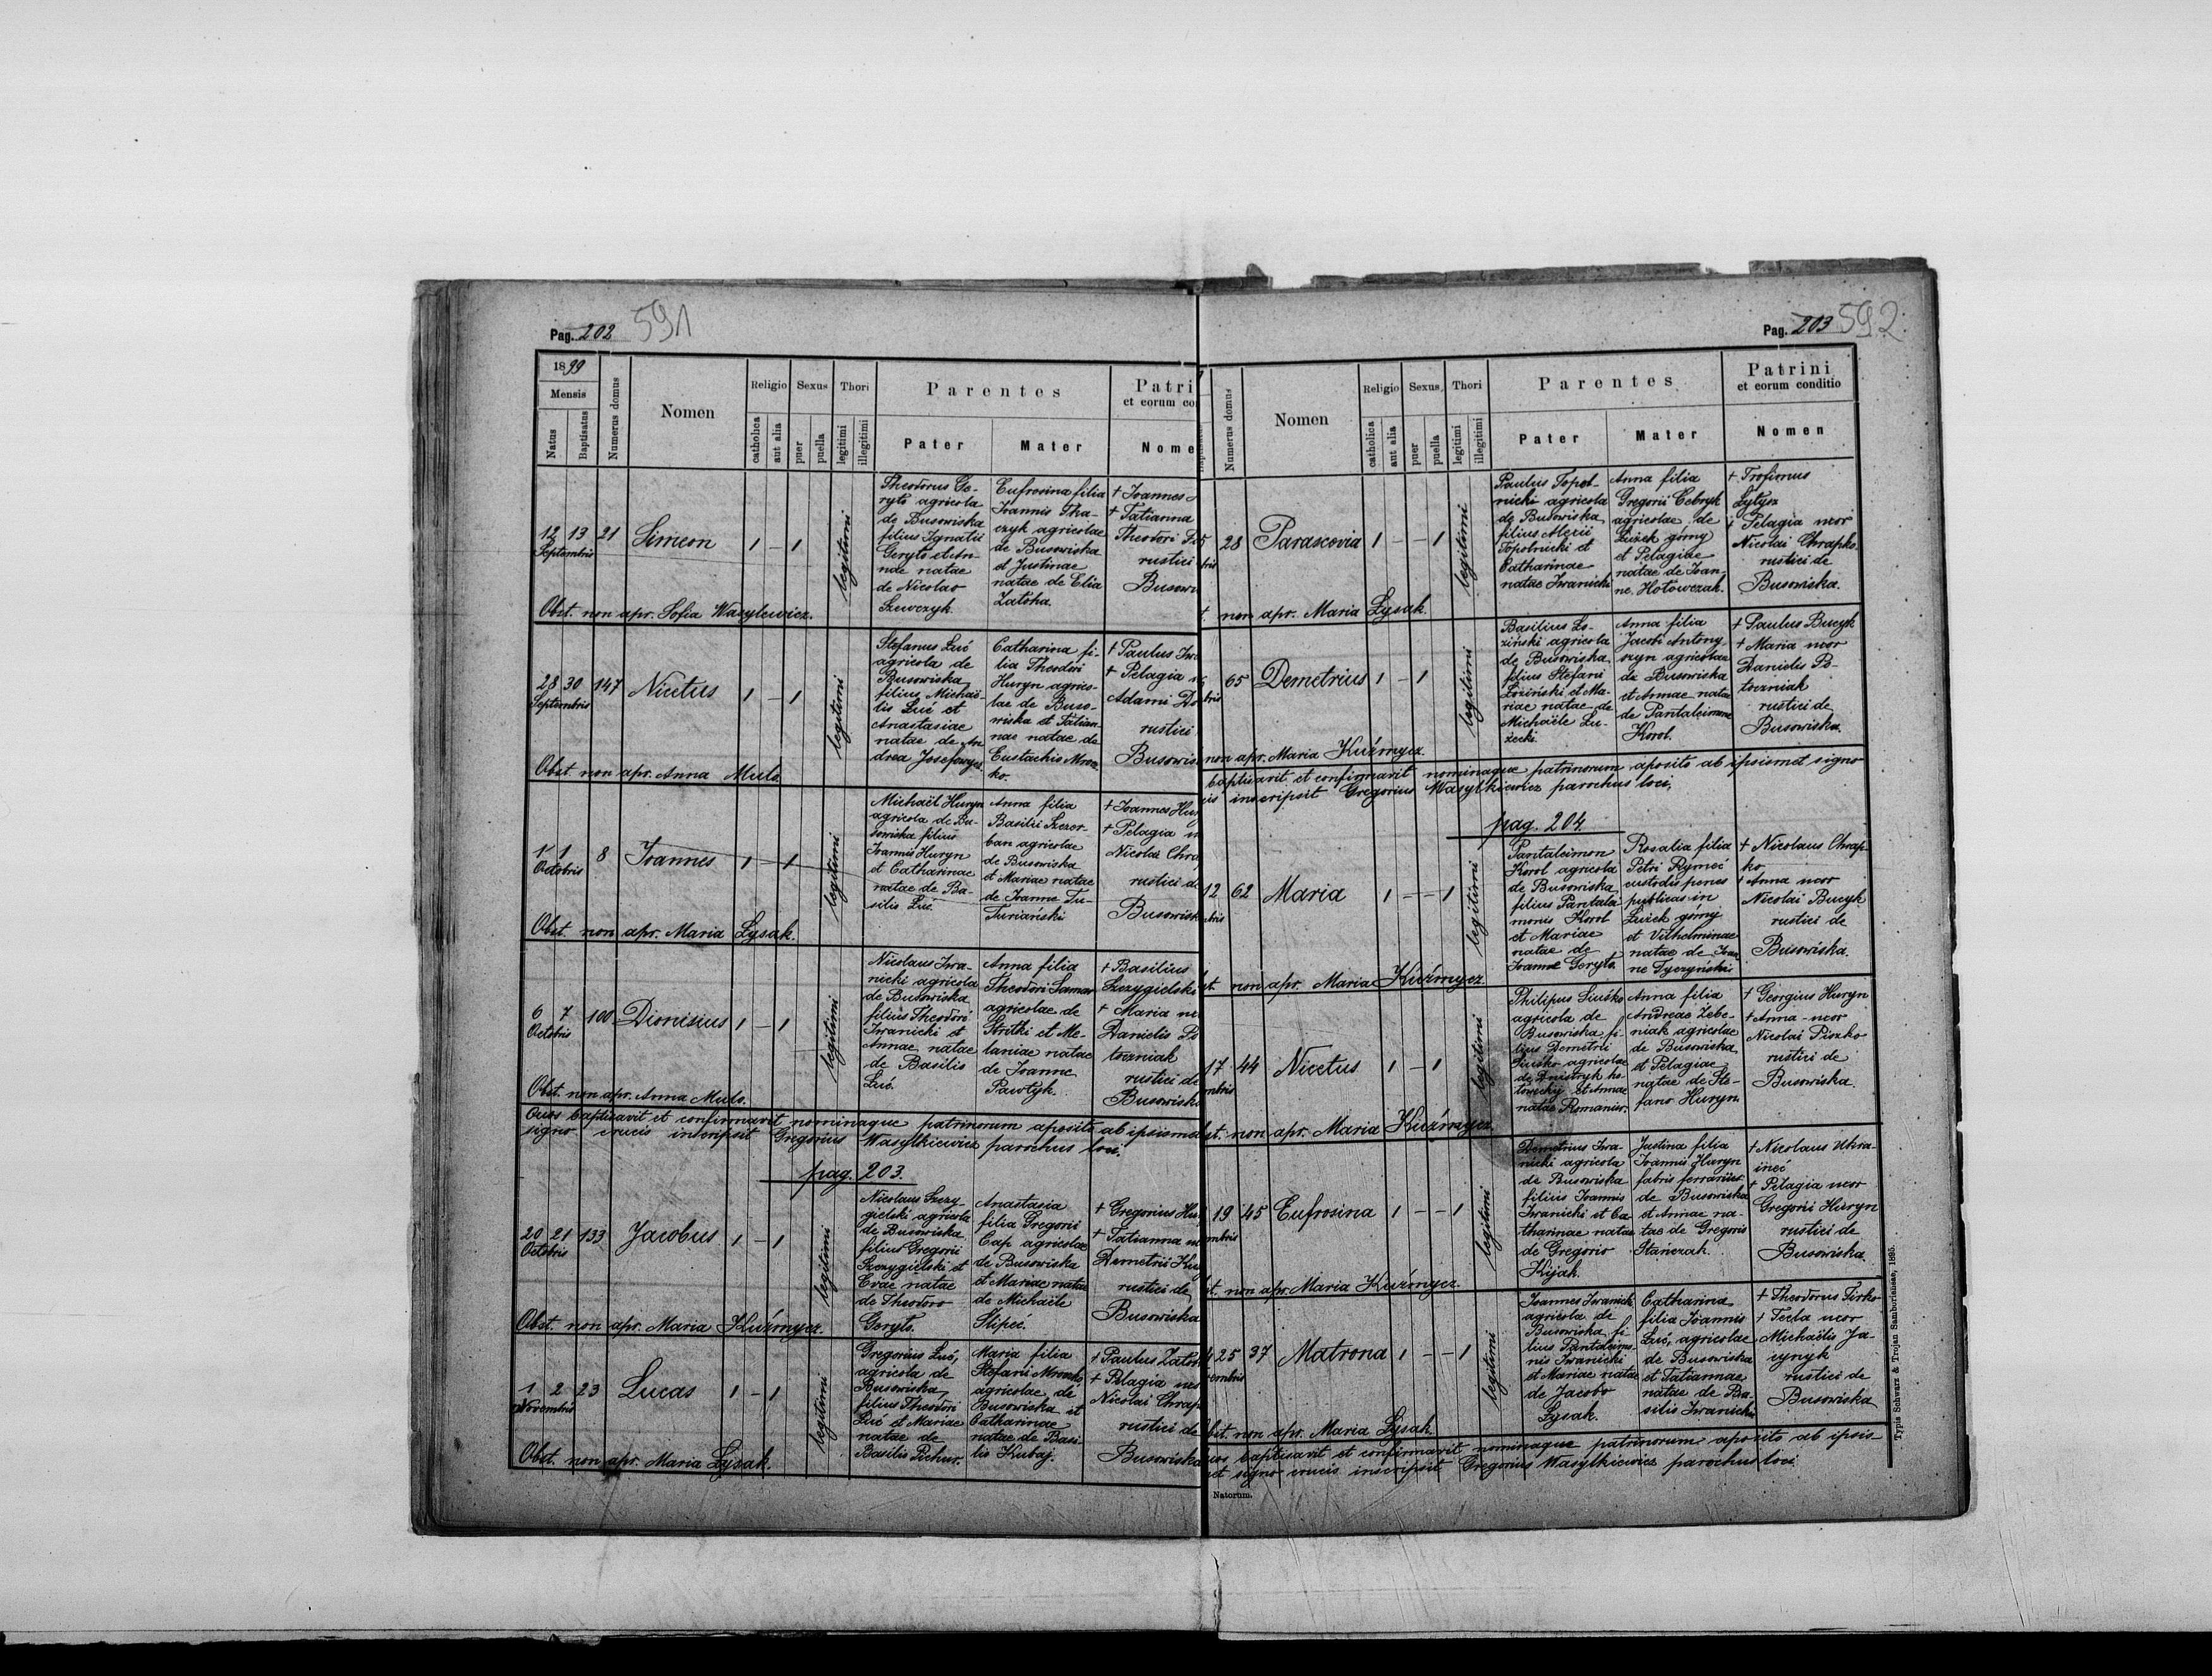 Pag. 202 591
1899
Mensis
Natus
Baptisatus
Numerus domus
Nomen
Religio
catholica
aut alia
Sexus
puer
puella
Thori
legitimi
illegitimi
Parentes
Pater
Mater
Patri
et eorum co
Nome
12 13 21 Simeon 1 - 1
Septembris
legitimi
Theodorus Ge-
ryło agricola
de Busowiska
filius Ignatii
Geryło et An-
nae natae
de Nicolao
Szewczyk.
Eufrosina filia
Joannis Tka-
czyk agricolae
de Busowiska
et Justinae
natae de Elia
Zatoha.
+ Joannes
+ Tatianna
Theodori
rustici
Busowi
Obst. non apr. Sofia Wasylewicz.
28 30 147 Nicetus 1 - 1
Septembris
legitimi
Stefanus Luć
agricola de
Busowiska
filius Michaë-
lis Luć et
Anastasiae
natae de An-
drea Josefowycz
Catharina fi-
lia Theodori
Huryn agrico-
lae de Buso-
wiska et Tatian-
nae natae de
Eustachio Mroz-
ko.
+ Paulus Iwa
+ Pelagia
Adami Do
rustici
Busowis
Obst. non apr. Anna Mulo.
1 1 8 Joannes 1 - 1
Octobris
legitimi
Michaël Huryn
agricola de Bu-
sowiska filius
Joannis Huryn
et Catharinae
natae de Ba-
silio Luć.
Anna filia
Basilii Szczer-
ban agricolae
de Busowiska
et Mariae natae
de Joanne Tu-
Turiański
+ Joannes Hur
+ Pelagia
Nicolai Chra
rustici de
Busowisk
Obst. non apr. Maria Łysak.
6 7 100 Dionisius 1 - 1
Octobris
legitimi
Nicolaus Iwa-
nicki agricola
de Busowiska
filius Theodori
Iwanicki et
Annae natae
de Basilio
Luć.
Anna filia
Theodori Samar
agricolae de
Striłki et Me-
laniae natae
de Joanne
Pawłyk.
+ Basilius
Szczygielski
+ Maria
Danielis Po
toczniak
rustici de
Busowiska
Obst. non apr. Anna Mulo.
Quos baptisavit et confirmavit nominaque patrinorum aposito ab ipsismet
signo crucis inscripsit Gregorius Wasylkiewicz parochus loci.
pag. 203.
20 21 133 Jacobus 1 - 1
Octobris
legitimi
Nicolaus Szczy-
gielski agricola
de Busowiska
filius Gregorii
Szczygielski et
Evae natae
de Theodoro
Geryło.
Anastasia
filia Gregorii
Cap agricolae
de Busowiska
et Mariae natae
de Michaële
Slipeć.
+ Gregorius Hur
+ Tatianna
Demetrii
rustici de
Busowiska
Obst. non apr. Maria Kuźmycz.
1 2 23 Lucas 1 - 1
Novembris
legitimi
Gregorius Luć,
agricola de
Busowiska
filius Theodori
Luć et Mariae
natae de
Basilio Pichur.
Maria filia
Stefani Mrozko
agricolae de
Busowiska et
Catharinae
natae de Basi-
lio Kubaj.
+ Paulus Zato
+ Pelagia
Nicolai Chrap
rustici de
Busowiska
Obst. non apr. Maria Łysak.
Pag. 203 592
Numerus domus
Nomen
Religio
catholica
aut alia
Sexus
puer
puella
Thori
legitimi
illegitimi
Parentes
Pater
Mater
Patrini
et eorum conditio
Nomen
28 Parascovia 1 - - 1
legitimi
Paulus Topol-
nicki agricola
de Busowiska
filius Alexii
Topolnicki et
Catharinae
natae Iwanicki
Anna filia
Gregorii Cebryk
agricolae de
Łużek górny
et Pelagiae
natae de Joan-
ne Hołowczak.
+ Trofimus
Łytyn
+ Pelagia uxor
Nicolai Chrapko
rustici de
Busowiska.
non apr. Maria Łysak.
65 Demetrius 1 - 1
legitimi
Basilius Ło-
ziński agricola
de Busowiska
filius Stefani
Łoziński et Ma-
riae natae de
Michaële Łu-
żecki.
Anna filia
Jacobi Antony-
szyn agricolae
de Busowiska
et Annae natae
de Pantaleimone
Korol.
+ Paulus Bucyk
+ Maria uxor
Danielis Po-
toczniak
rustici de
Busowiska.
non apr. Maria Kuźmycz.
baptisavit et confirmavit nominaque patrinorum aposito ab ipsismet signo
cis inscripsit Gregorius Wasylkiewicz parochus loci.
pag. 204.
12 62 Maria 1 - - 1
legitimi
Pantaleimon
Korol agricola
de Busowiska
filius Pantalei-
monis Korol
et Mariae
natae de
Joanne Geryło.
Rosalia filia
Petri Rymeć
custodis penes
publicas in
Łużek górny
et Vilhelminae
natae de Joan-
ne Tyczyński.
+ Nicolaus Chrap-
ko
+ Anna uxor
Nicolai Bucyk
rustici de
Busowiska.
non apr. Maria Kuźmycz.
17 44 Nicetus 1 - 1
legitimi
Philipus Siuśko
agricola de
Busowiska fi-
lius Demetrii
Siuśko agricolae
de Dnistryk ho-
łowecky et Annae
natae Romaniw.
Anna filia
Andreae Żebe-
niak agricolae
de Busowiska
et Pelagiae
natae de Ste-
fano Huryn.
+ Georgius Huryn
+ Anna uxor
Nicolai Piszko
rustici de
Busowiska.
non apr. Maria Kuźmycz.
19 45 Eufrosina 1 - - 1
legitimi
Demetrius Iwa-
nicki agricola
de Busowiska
filius Joannis
Iwanicki et Ca-
tharinae natae
de Gregorio
Kijak.
Justina filia
Joannis Huryn
fabris ferrarius
de Busowiska
et Annae na-
tae de Gregorio
Stańczak.
+ Nicolaus Ukra-
ineć
+ Pelagia uxor
Gregorii Huryn
rustici de
Busowiska.
non apr. Maria Kuźmycz.
25 37 Matrona 1 - - 1
legitimi
Joannes Iwanicki
agricola de
Busowiska fi-
lius Pantaleimo-
nis Iwanicki
et Mariae natae
de Jacobo
Łysak.
Catharina
filia Joannis
Luć, agricolae
de Busowiska
et Tatiannae
natae de Ba-
silio Iwanicki
+ Theodorus Firko
+ Tecla uxor
Michaëlis Ja-
cynyk
rustici de
Busowiska
Obst. non apr. Maria Łysak
baptisavit et confirmavit nominaque patrinorum aposito ab ipsis-
met signo crucis inscripsit Gregorius Wasylkiewicz parochus loci.
Natorum.
Typis Schwarz & Trojan Samboriniae, 1895.